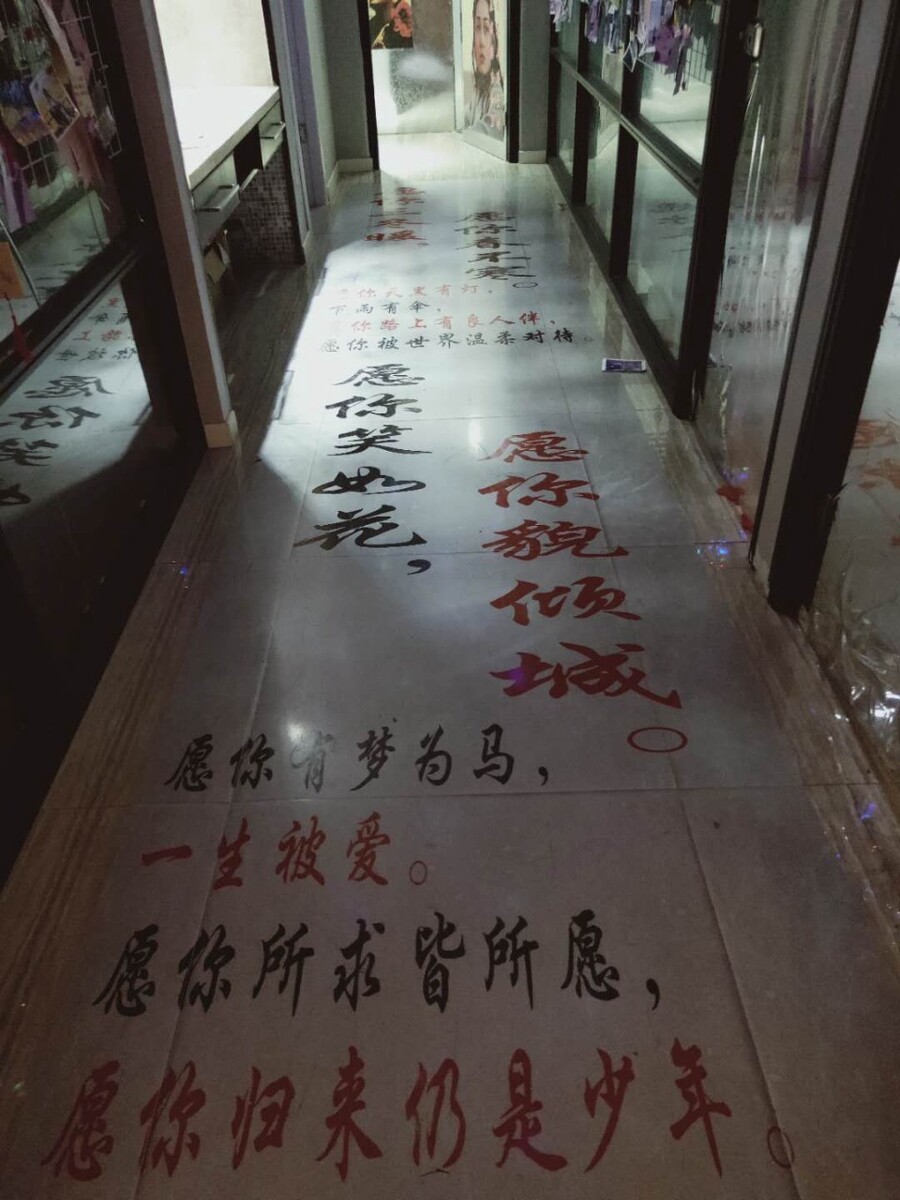 你三冬暖,
愿你春不寒。
你天黑有灯,
下雨有伞,
愿你路上有良人伴,
愿你被世界温柔对待。
愿你笑如花,
愿你貌倾城。
愿你有梦为马,
一生被爱。
愿你所求皆所愿,
愿你归来仍是少年。